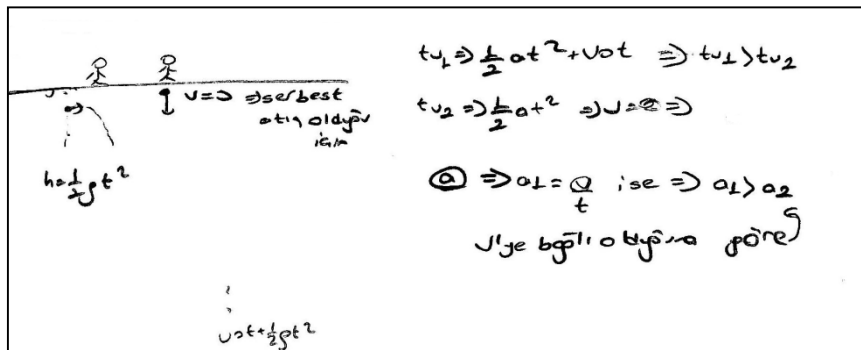 v=0 ⇒ serbest
atış olduğu
için
h=½gt²
v0t+½gt²
tv₁ ⇒ ½at²+v0t ⇒ tv₁>tv₂
tv₂ ⇒ ½at² ⇒ v=0 ⇒
a ⇒ a₁=v/t ise ⇒ a₁>a₂
v'ye bağlı olduğuna göre